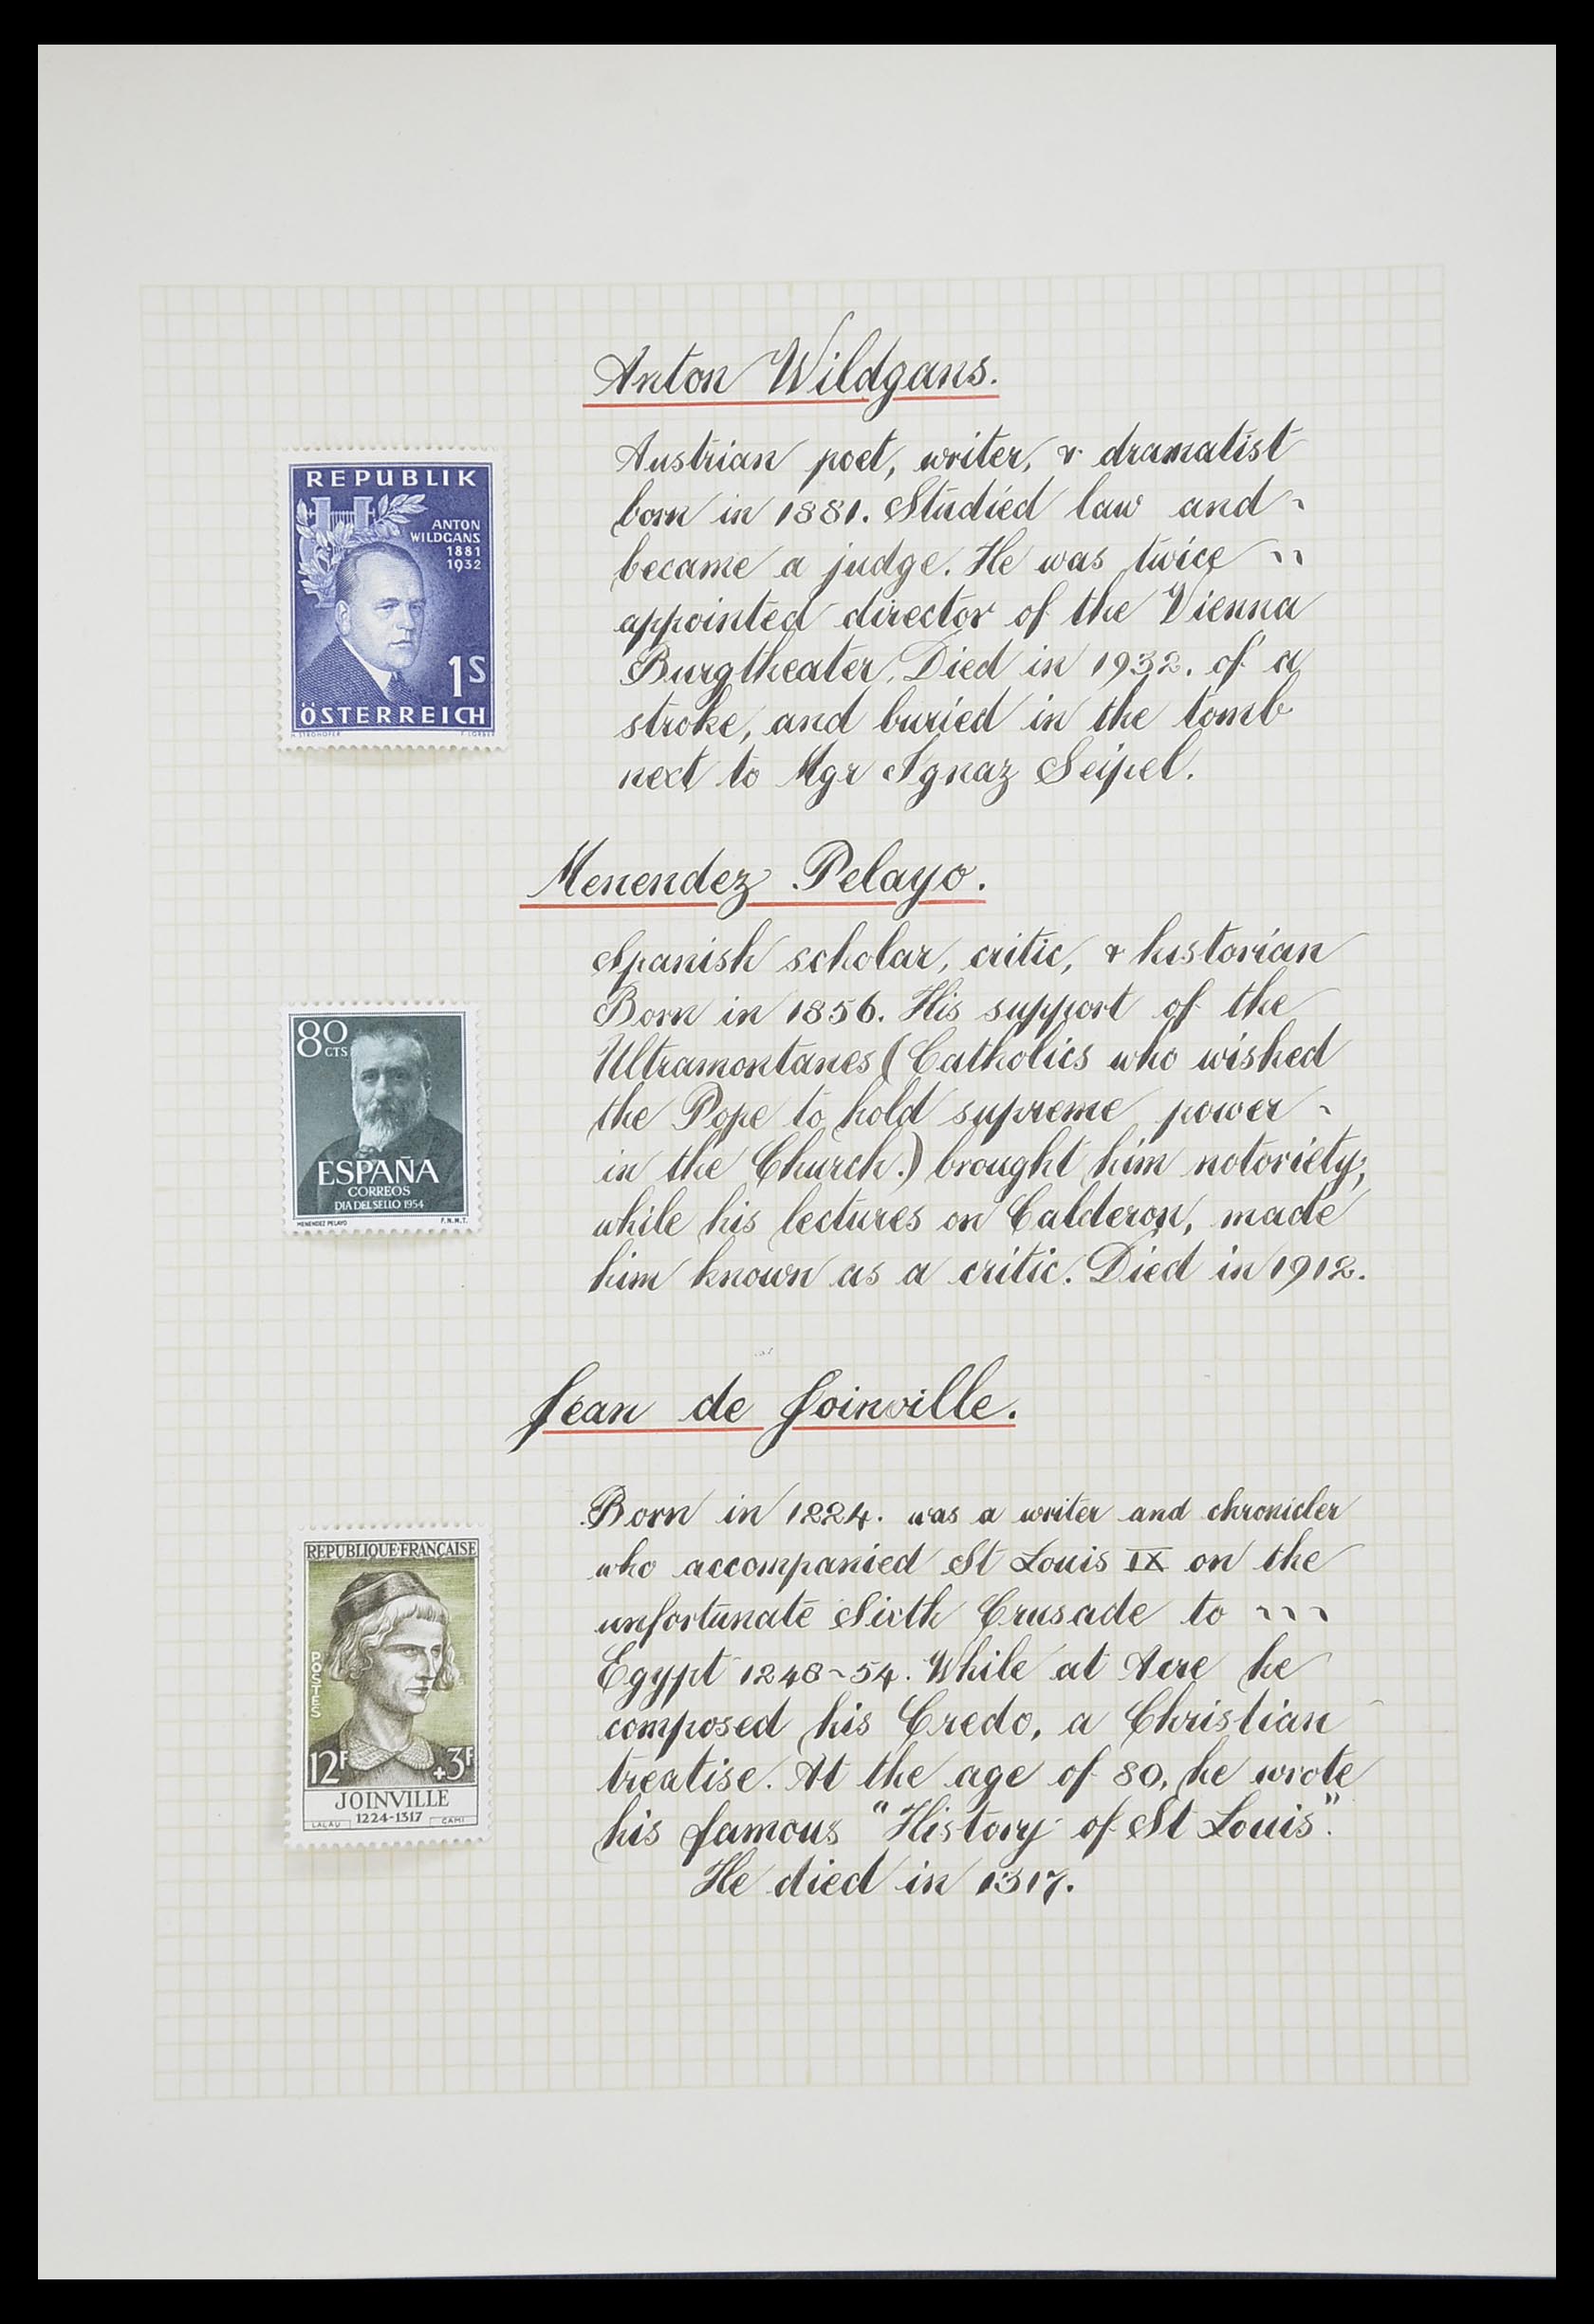 Anton Wildgans.
REPUBLIK
ANTON
WILDGANS
1881
1932
1S
ÖSTERREICH
H. STROHOFER T. LORBER
Austrian poet, writer, & dramatist
born in 1881. Studied law and ~
became a judge. He was twice ~~
appointed director of the Vienna
Burgtheater. Died in 1932. of a
stroke, and buried in the tomb
next to Mgr Ignaz Seipel.
Menendez Pelayo.
80
CTS
ESPAÑA
CORREOS
DIA DEL SELLO 1954
MENENDEZ PELAYO F.N.M.T.
Spanish scholar, critic, & historian
Born in 1856. His support of the
Ultramontanes (Catholics who wished
the Pope to hold supreme power ~
in the Church.) brought him notoriety,
while his lectures on Calderon, made
him known as a critic. Died in 1912.
Jean de Joinville.
REPUBLIQUE·FRANÇAISE
POSTES
12F +3F
JOINVILLE
1224-1317
LALAU CAMI
Born in 1224. was a writer and chronicler
who accompanied St Louis IX on the
unfortunate Sixth Crusade to ~~~
Egypt 1248~54. While at Acre he
composed his Credo, a Christian
treatise. At the age of 80, he wrote
his famous "History of St Louis".
He died in 1317.